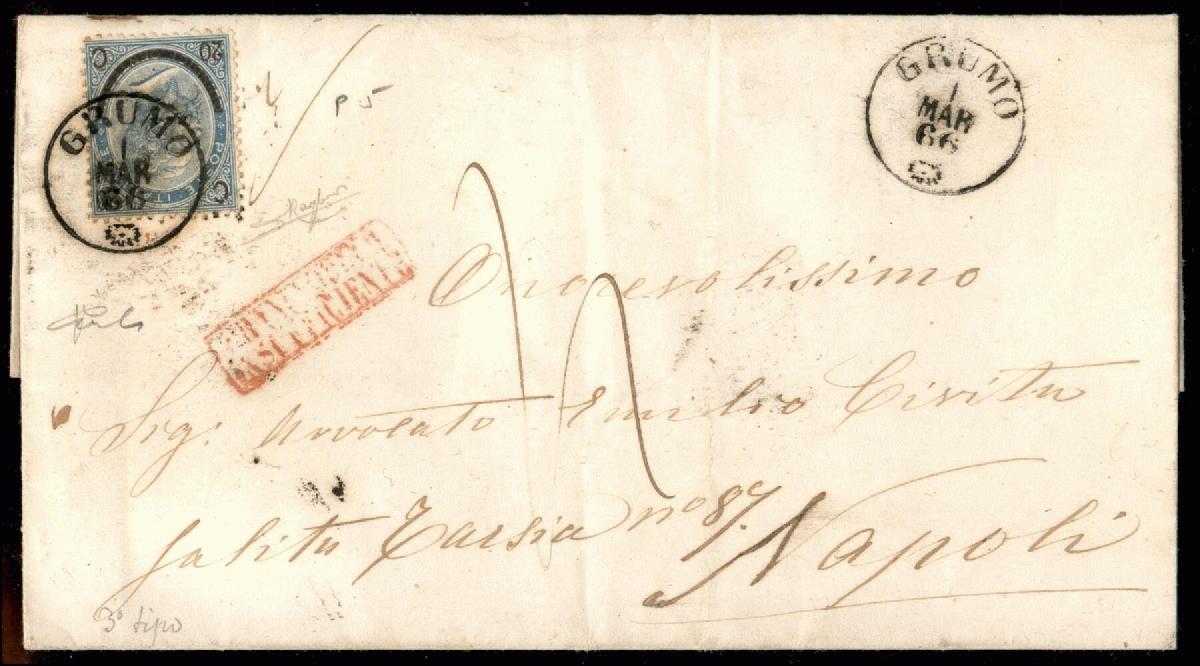 C 20
GRUMO
1
MAR
66
P 5
GRUMO
1
MAR
66
INSUFFICIENTE
Onorevolissimo
Sig: Avvocato Emilio Civita
Salita Tarsia n° 87.
Napoli
3° tipo